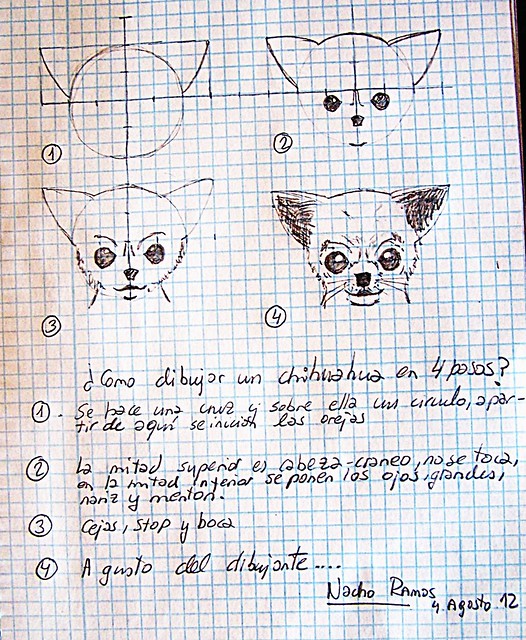 1
2
3
4
¿Como dibujar un chihuahua en 4 pasos?
1. Se hace una cruz y sobre ella un circulo, a par-
tir de aquí se inician las orejas
2 La mitad superior es cabeza-craneo, no se toca,
en la mitad inferior se ponen los ojos, grandes,
nariz y menton.
3 Cejas, stop y boca
4 A gusto del dibujante....
Nacho Ramos
4. Agosto 12